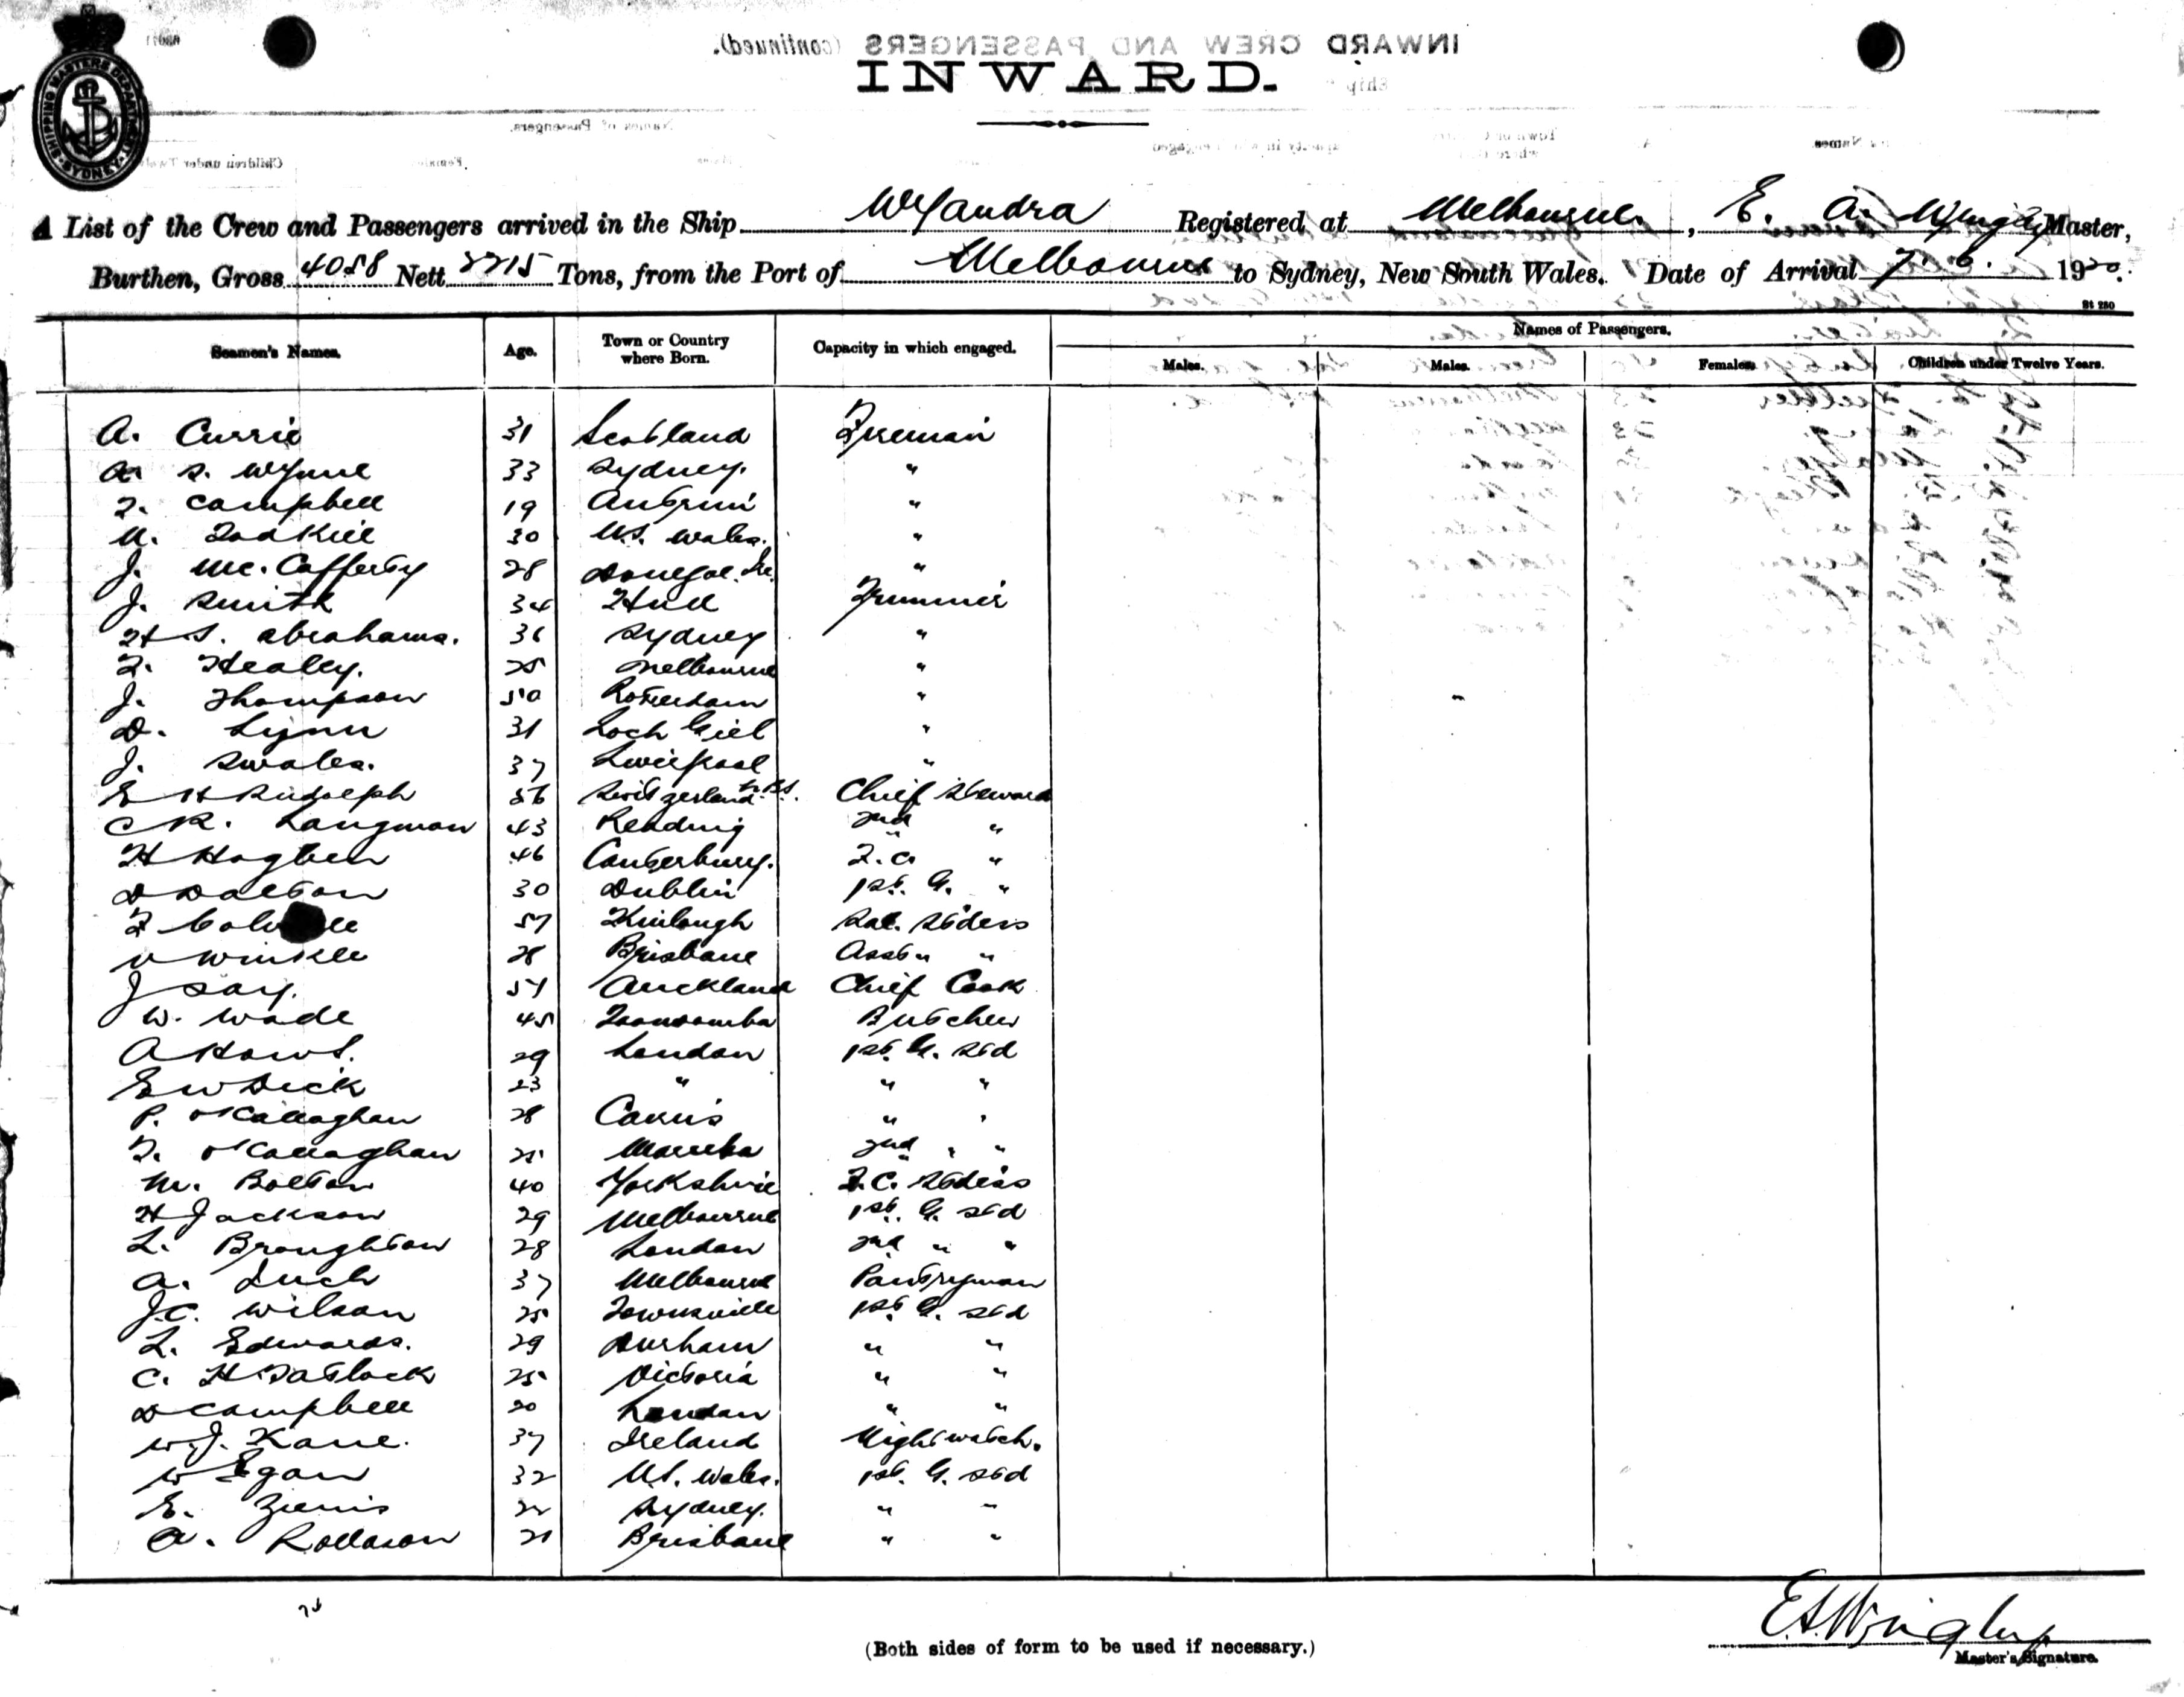 INWARD.
SHIPPING MASTERS DEPARTMENT SYDNEY
A List of the Crew and Passengers arrived in the Ship Wyandra Registered at Melbourne, E. A. Wrigley Master,
Burthen, Gross 4058 Nett 2215 Tons, from the Port of Melbourne to Sydney, New South Wales. Date of Arrival 7. 6. 1920.
St 280
Seamen's Names. Age. Town or Country where Born. Capacity in which engaged. Names of Passengers.
Males. Males. Females. Children under Twelve Years.
A. Currie 31 Scotland Fireman
A. S. Wynne 33 Sydney. "
F. Campbell 19 Antrim "
30 N.S. Wales. "
J. Mc. Cafferty 28 Donegal. Ire. "
J. Smith 34 Hull Trimmer
H S. Abrahams. 36 Sydney "
T. Healey. 25 Melbourne "
J. Thompson 50 Rotterdam "
D. Lynn 31 Loch Giel "
J. Swales. 37 Liverpool "
E H Rudolph 56 Switzerland Chief Steward
C R. Langman 43 Reading 2nd "
H Hogben 46 Canterbury. F.C. "
D Dalton 30 Dublin 1st. G. "
57 Kinlough Sal. Stdess
V Winkle 28 Brisbane Asst " "
J Day. 51 Auckland Chief Cook
W. Wade 45 Toowoomba Butcher
A Hows. 29 London 1st. G. Std
E W Dick 23 " " "
P. O'Callaghan 28 Cairns " "
T. O'Callaghan 25 2nd " "
M. Bolton 40 Yorkshire F.C. Stdess
H Jackson 29 Melbourne 1st. G. Std
L. Broughton 28 London 2nd " "
A. 37 Melbourne Pantryman
J.C. Wilson 25 Townsville 1st. G. Std
L. Edwards. 29 Durham " "
C. H Tatlock 25 Victoria " "
D Campbell 20 London " "
W.J. Kane. 37 Ireland Nightwatch.
W Egan 32 N.S. Wales. 1st. G. Std
E. 22 Sydney. " "
A. Rollason 21 Brisbane " "
(Both sides of form to be used if necessary.)
E.A. Wrigley
Master's Signature.